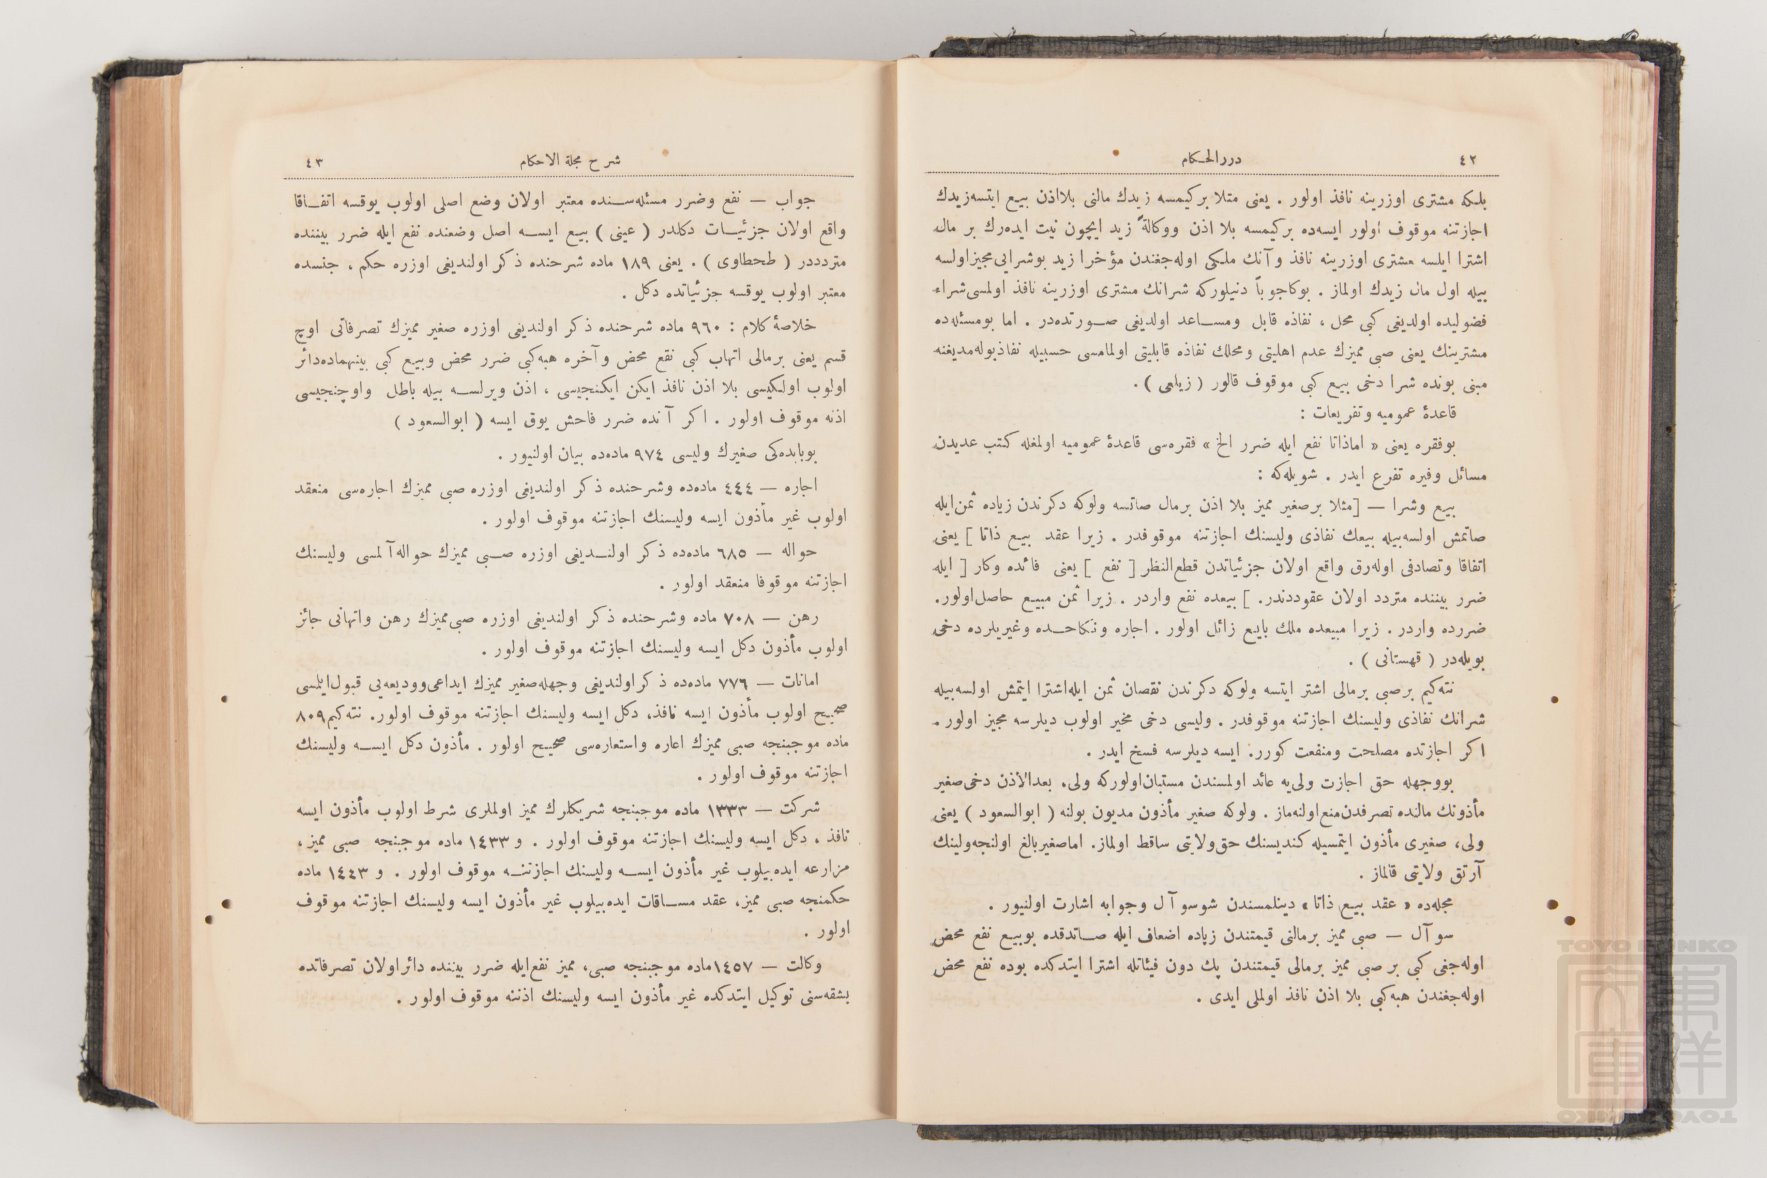 ٤٢
درر الحكام
بلكه مشترى اوزرينه نافذ اولور . يعنى مثلا بركيمسه زيدك مالنى بلااذن بيع ايتسه زيدك
اجازتنه موقوف اولور ايسه‌ده بركيمسه بلا اذن ووكالةً زيد ايچون نيت ايده‌رك بر مال
اشترا ايلسه مشترى اوزرينه نافذ و آنك ملكى اوله‌جغندن مؤخرا زيد بوشرايى مجيز اولسه
بيله اول مال زيدك اولماز . بوكا جوباً دنيلوركه شرانك مشترى اوزرينه نافذ اولمسى شراء
فضوليده اولديغى كبى محل ، نفاذه قابل ومساعد اولديغى صورتده‌در . اما بومسئله‌ده
مشترينك يعنى صبى مميزك عدم اهليتى ومحلك نفاذه قابليتى اولمامسى حسبيله نفاذ بوله‌مديغنه
مبنى بونده شرا دخى بيع كبى موقوف قالور ( زيلعى ) .
قاعدۀ عموميه وتفريعات :
بوفقره يعنى « اماذاتا نفع ايله ضرر الخ » فقره‌سى قاعدۀ عموميه اولمغله كتب عديدن
مسائل وفيره تفرع ايدر . شويله‌كه :
بيع وشرا — [ مثلا برصغير مميز بلا اذن برمال صاتسه ولوكه دكرندن زياده ثمن‌ايله
صاتمش اولسه‌بيله بيعك نفاذى وليسنك اجازتنه موقوفدر . زيرا عقد بيع ذاتا ] يعنى
اتفاقا وتصادفى اوله‌رق واقع اولان جزئياتدن قطع‌النظر [ نفع ] يعنى فائده وكار [ ايله
ضرر بيننده متردد اولان عقوددندر. ] بيعده نفع واردر . زيرا ثمن مبيع حاصل اولور.
ضررده واردر . زيرا مبيعده ملك بايع زائل اولور . اجاره ونكاحده وغيريلرده دخى
بويله‌در ( قهستانى ) .
نته‌كيم برصبى برمالى اشتر ايتسه ولوكه دكرندن نقصان ثمن ايله‌اشترا ايتمش اولسه‌بيله
شرانك نفاذى وليسنك اجازتنه موقوفدر . وليسى دخى مخير اولوب ديلرسه مجيز اولور .
اكر اجازتده مصلحت ومنفعت كورر. ايسه ديلرسه فسخ ايدر .
بووجهله حق اجازت ولى‌يه عائد اولمسندن مستبان‌اولوركه ولى، بعدالاذن دخى‌صغير
مأذونك مالنده تصرفدن‌منع‌اولنه‌ماز . ولوكه صغير مأذون مديون بولنه ( ابوالسعود ) يعنى
ولى، صغيرى مأذون ايتمسيله كنديسنك حق‌ولايتى ساقط اولماز. اماصغيربالغ اولنجه‌ولينك
آرتق ولايتى قالماز .
مجله‌ده « عقد بيع ذاتا » دينلمسندن شوسوآل وجوابه اشارت اولنيور .
سوآل — صبى مميز برمالنى قيمتندن زياده اضعاف ايله صاتدقده بوبيع نفع محض
اوله‌جغى كبى بر صبى مميز برمالى قيمتندن پك دون فيئاتله اشترا ايتدكده بوده نفع محض
اوله‌جغندن هبه‌كبى بلا اذن نافذ اولملى ايدى .
شرح مجلة الاحكام
٤٣
جواب — نفع وضرر مسئله‌سنده معتبر اولان وضع اصلى اولوب يوقسه اتفاقا
واقع اولان جزئيات دكلدر ( عينى ) بيع ايسه اصل وضعنده نفع ايله ضرر بيننده
مترددر ( طحطاوى ) . يعنى ١٨٩ ماده شرحنده ذكر اولنديغى اوزره حكم ، جنسده
معتبر اولوب يوقسه جزئياتده دكل .
خلاصۀ كلام : ٩٦٠ ماده شرحنده ذكر اولنديغى اوزره صغير مميزك تصرفاتى اوچ
قسم يعنى برمالى اتهاب كبى نفع محض و آخره هبه‌كبى ضرر محض وبيع كبى بينهماده‌دائر
اولوب اولكيسى بلا اذن نافذ ايكن ايكنجيسى ، اذن ويرلسه بيله باطل واوچنجيسى
اذنه موقوف اولور . اكر آنده ضرر فاحش يوق ايسه ( ابوالسعود )
بوبابده‌كى صغيرك وليسى ٩٧٤ ماده‌ده بيان اولنيور .
اجاره — ٤٤٤ ماده‌ده وشرحنده ذكر اولنديغى اوزره صبى مميزك اجاره‌سى منعقد
اولوب غير مأذون ايسه وليسنك اجازتنه موقوف اولور .
حواله — ٦٨٥ ماده‌ده ذكر اولنديغى اوزره صبى مميزك حواله آلمسى وليسنك
اجازتنه موقوفا منعقد اولور .
رهن — ٧٠٨ ماده وشرحنده ذكر اولنديغى اوزره صبى‌مميزك رهن واتهانى جائز
اولوب مأذون دكل ايسه وليسنك اجازتنه موقوف اولور .
امانات — ٧٧٦ ماده‌ده ذكراولنديغى وجهله‌صغير مميزك ايداعى‌ووديعه‌يى قبول‌ايلمسى
صحيح اولوب مأذون ايسه نافذ، دكل ايسه وليسنك اجازتنه موقوف اولور. نته‌كيم ٨٠٩
ماده موجبنجه صبى مميزك اعاره واستعاره‌سى صحيح اولور . مأذون دكل ايسه وليسنك
اجازتنه موقوف اولور .
شركت — ١٣٣٣ ماده موجبنجه شريكلرك مميز اولملرى شرط اولوب مأذون ايسه
نافذ ، دكل ايسه وليسنك اجازتنه موقوف اولور . و ١٤٣٣ ماده موجبنجه صبى مميز ،
مزارعه ايده‌بيلوب غير مأذون ايسه وليسنك اجازتنه موقوف اولور . و ١٤٤٣ ماده
حكمنجه صبى مميز، عقد مساقات ايده‌بيلوب غير مأذون ايسه وليسنك اجازتنه موقوف
اولور .
وكالت — ١٤٥٧ ماده موجبنجه صبى، مميز نفع‌ايله ضرر بيننده دائراولان تصرفاتده
بشقه‌سنى توكيل ايتدكده غير مأذون ايسه وليسنك اذننه موقوف اولور .
TOYO BUNKO
東洋文庫
TOYO BUNKO